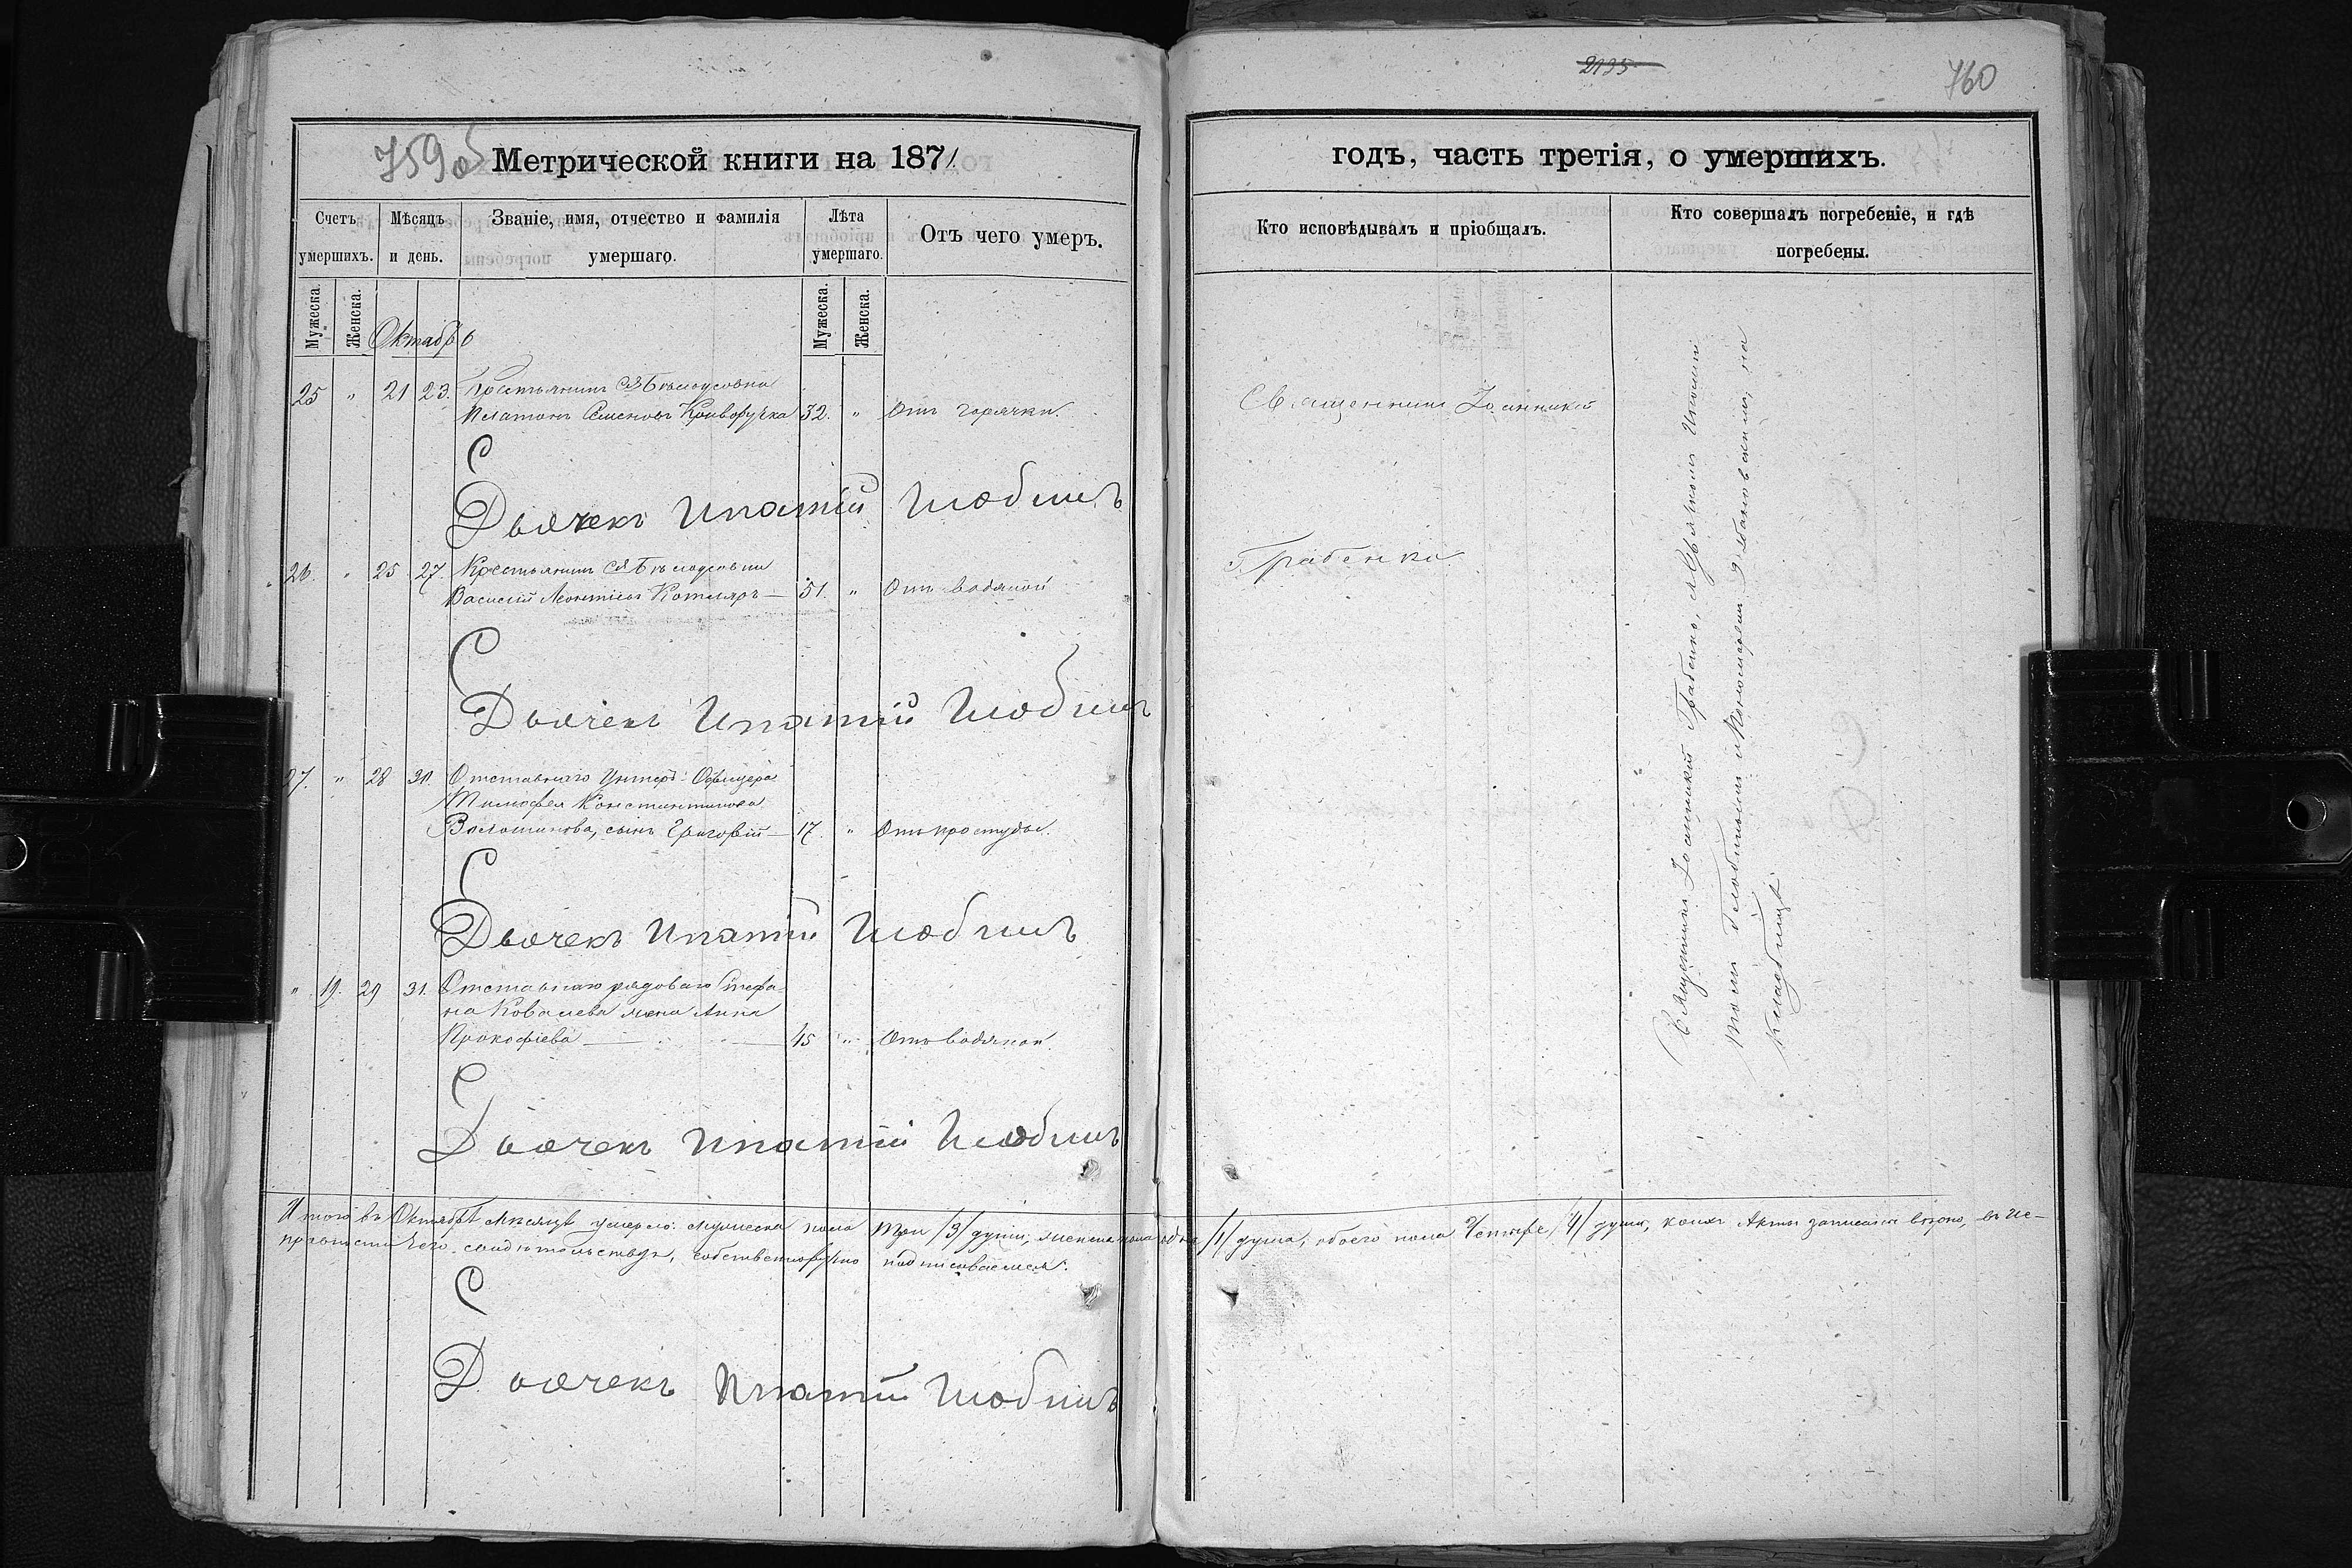 2135
760
759 об
Метрической книги на 1871
годъ, часть третія, о умершихъ.
Счетъ умершихъ.
Мѣсяцъ и день.
Званіе, имя, отчество и фамилія умершаго.
Лѣта умершаго.
Отъ чего умеръ.
Кто исповѣдывалъ и пріобщалъ.
Кто совершалъ погребеніе, и гдѣ погребены.
Мужеска.
Женска.
Мужеска.
Женска.
Октябрь
25 " 21 23. Крестьянинъ
Платонъ Семеновъ Криворучка 32. " Отъ горячки.
Священникъ Іоанникій
Дьячекъ Ипатій Глобинъ
26. " 25 27. Крестьянинъ
Василій Леонтіевъ Котляръ — 51. " Отъ водяной
Грабенко.
Дьячекъ Ипатій Глобинъ
27. " 28 31. Отставнаго Унтеръ-Офицера
Тимофея Константинова
Волошинова, сынъ Григорій — 17. " Отъ простуды.
Дьячекъ Ипатій Глобинъ
" 19. 29 31. Отставнаго рядоваго Стефа-
на Ковалева жена Анна
Прокофіева — 45 " Отъ водяной
Дьячекъ Ипатій Глобинъ
Священникъ Іоанникій Грабенко, съ Дьячкомъ Ипатій
темъ Глобинымъ и Пономаремъ на
Кладбищѣ
Итого въ Октябрѣ мѣсяцѣ умерло: мужеска пола три /3/ души, женска пола одна /1/ душа, обоего пола Четыре /4/ души, коихъ Акты записаны вѣрно, въ че-
чего свидѣтельствуя, собственноручно подписываемся:
Дьячекъ Ипатій Глобинъ